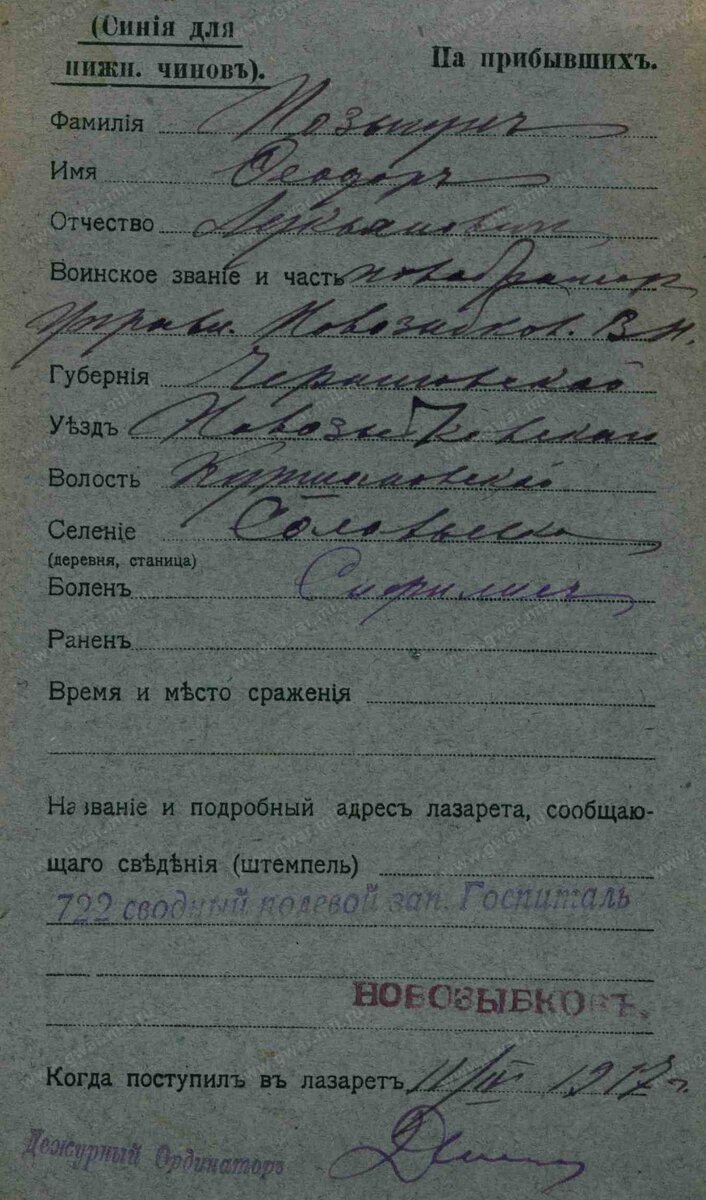 (Синія для
нижн. чиновъ).
На прибывшихъ.
Фамилія
Имя Ѳеодоръ
Отчество Лукьяновичъ
Воинское званіе и часть новобранецъ
Управл. Новозыбков. В. Н.
Губернія Черниговской
Уѣздъ Новозыбковскаго
Волость
Селеніе Соловьевка
(деревня, станица)
Боленъ Сифилисъ
Раненъ
Время и мѣсто сраженія
Названіе и подробный адресъ лазарета, сообщаю-
щаго свѣдѣнія (штемпель)
722 сводный полевой зап. Госпиталь
НОВОЗЫБКОВЪ.
Когда поступилъ въ лазаретъ 11/IV 1917 г.
Дежурный Ординаторъ